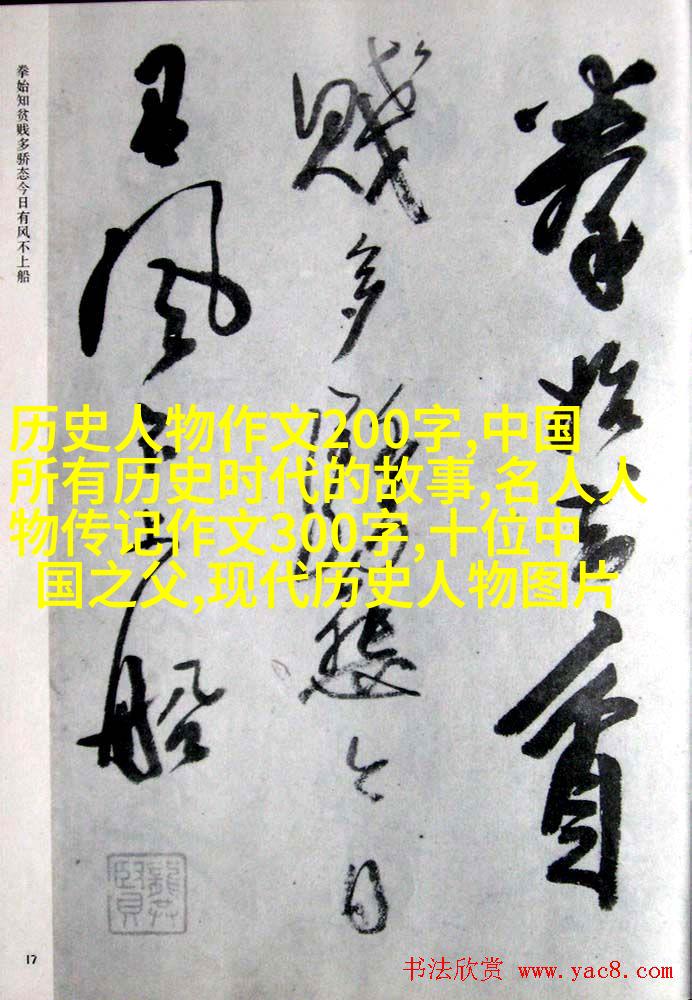 拳始知贫贱多骄态今日有风不上船
拳始知貧
賤多驕態今日
有風不上船
历史人物作文200字,中国
所有历史时代的故事,名人人
物传记作文300字,十位中
国之父,现代历史人物图片
17
书法欣赏 www.yac8.com